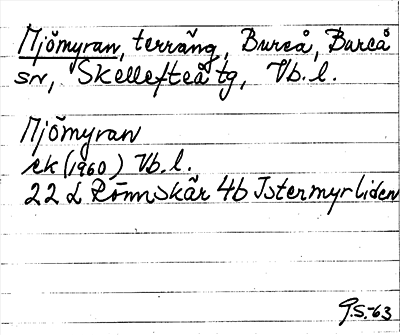 Mjömyran, terräng, Bureå, Bureå
sn, Skellefteå tg, Vb. l.
Mjömyran
ek (1960) Vb. l.
22 L Rönnskär 4b Istermyrliden
G.S.-63